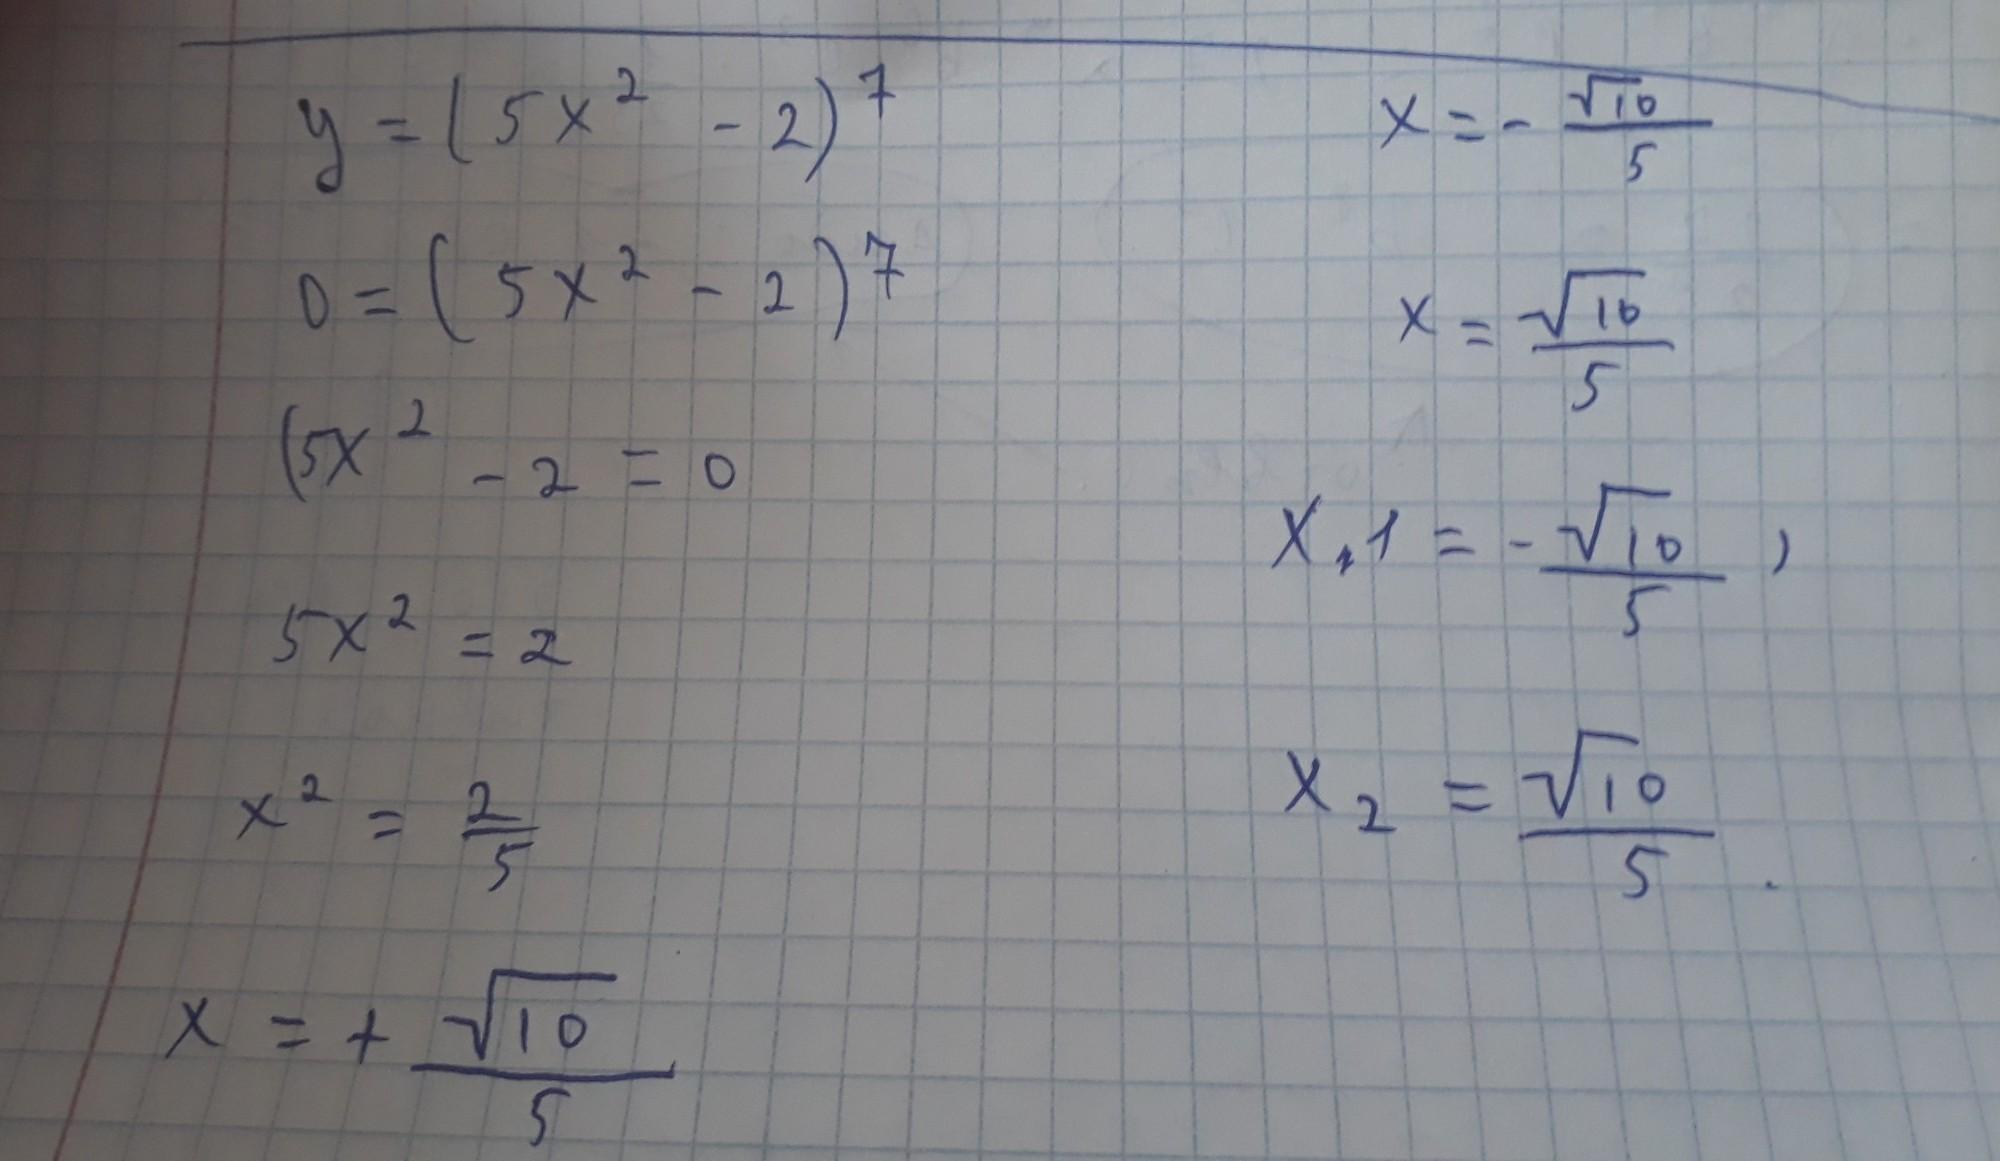 y = (5x² - 2)⁷
0 = (5x² - 2)⁷
(5x² - 2 = 0
5x² = 2
x² = 2/5
x = + √10/5
x = - √10/5
x = √10/5
x,1 = - √10/5 ,
x₂ = √10/5 .